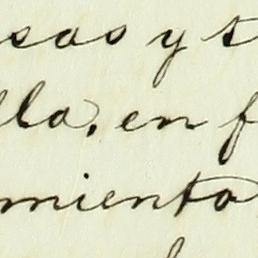 sas y s
lla, en f
miento